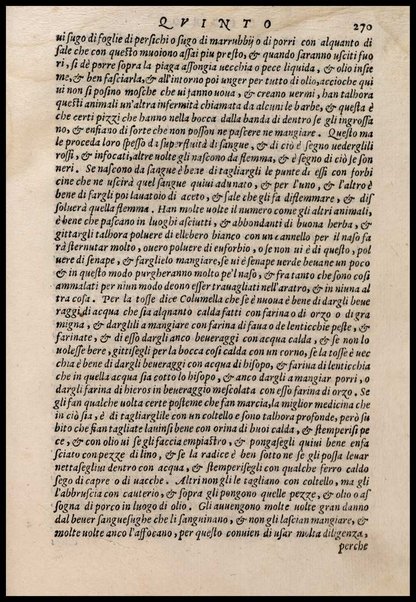 QVINTO 270
ui sugo di foglie di persichi o sugo di marrubbij o di porri con alquanto di
sale che con questo muoiono assai piu presto, & quando saranno usciti fuo
ri, si dè porre sopra la piaga assongia uecchia o pece liquida, & olio insie
me, & ben fasciarla, & all'intorno poi unger per tutto di olio, accioche qui
ui non si posino mosche che ui fanno uoua, & creano uermi, han talhora
questi animali un'altra infermità chiamata da alcuni le barbe, & questa è
che certi pizzi che hanno nella bocca dalla banda di dentro se gli ingrossa
no, & enfiano di sorte che non posson ne pascere ne mangiare. Questo ma
le procede loro spesso da superfluità di sangue, & di ciò è segno uederglili
rossi, & infocati, altre uolte gli nascono da flemma, & è segno di ciò se son
neri. Se nascono da sangue è bene di tagliargli le punte di essi con forbi
cine che ne uscirà quel sangue quiui adunato, & per l'uno, & l'altro è
bene di fargli poi lauatoio di aceto, & sale che gli fa disflemmare, & dis
soluerà quella flemma. Han molte uolte il numero come gli altri animali,
è bene che pascano in luoghi asciutti, & abbondanti di buona herba, &
gittargli talhora poluere di elleboro bianco con un cannello per il naso fa
rà sternutar molto, ouero poluere di euforbio, o se non ui è di questo, pol
uere di senape, & farglielo mangiare, se ui è senape uerde beuane un poco
& in questo modo purgheranno molto pe'l naso, & fra tanto che sono cosi
ammalati per niun modo deono esser trauagliati nell'aratro, & in niuna al
tra cosa. Per la tosse dice Columella che se è nuoua è bene di dargli beue
raggi, di acqua che sia alquanto calda fatti con farina di orzo o di gra
migna, & dargli li a mangiare con farina di faua o de lenticchie peste, &
farinate, & di esso dargli anco beueraggi con acqua calda, & se non lo
uolesse bere, gittisegli per la bocca cosi calda con un corno, se la tosse è uec
chia è bene di dargli beueraggi con acqua di hisopo, & farina di lenticchia
che in quella acqua sia cotto lo hisopo, & anco dargli a mangiar porri, o
dargli farina di hieros in beueraggio mescolata con esso farina di orzo. Se
gli fan qualche uolta certe posteme che fan marcia, la miglior medicina che
in ciò sia, è di tagliarglile con un coltello e sono talhora profonde, però su
bito che sian tagliate lauinsi bene con orina di buoi calda, & stemperisi pe
ce, & con olio ui se gli faccia empiastro, & pongasegli quiui bene enfa
sciato con pezze di lino, & se la radice è ben sotto ne se gli possa leuar
nettasegliui dentro con acqua, & stemperisegli con qualche ferro caldo
sego di capre o di uacche. Altri non gli le tagliano con coltello, ma gli
l'abbruscia con cauterio, & sopra gli pongono quelle pezze, & olio o as
sogna di porco in luogo di olio. Gli auuengono molte uolte gran danno
dal beuer sanguesughe che li sanguinano, & non gli lascian mangiare, &
molte uolte anco l'affocano, per questo conuien di usar molta diligenza,
perche